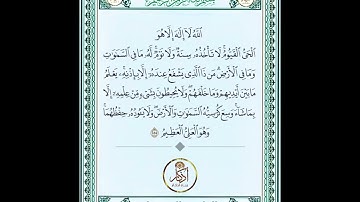 اللَّهُ لَا إِلَٰهَ إِلَّا هُوَ
الْحَيُّ الْقَيُّومُ لَا تَأْخُذُهُ سِنَةٌ وَلَا نَوْمٌ لَّهُ مَا فِي السَّمَاوَاتِ
وَمَا فِي الْأَرْضِ مَن ذَا الَّذِي يَشْفَعُ عِندَهُ إِلَّا بِإِذْنِهِ يَعْلَمُ
مَا بَيْنَ أَيْدِيهِمْ وَمَا خَلْفَهُمْ وَلَا يُحِيطُونَ بِشَيْءٍ مِّنْ عِلْمِهِ إِلَّا
بِمَا شَاءَ وَسِعَ كُرْسِيُّهُ السَّمَاوَاتِ وَالْأَرْضَ وَلَا يَئُودُهُ حِفْظُهُمَا
وَهُوَ الْعَلِيُّ الْعَظِيمُ